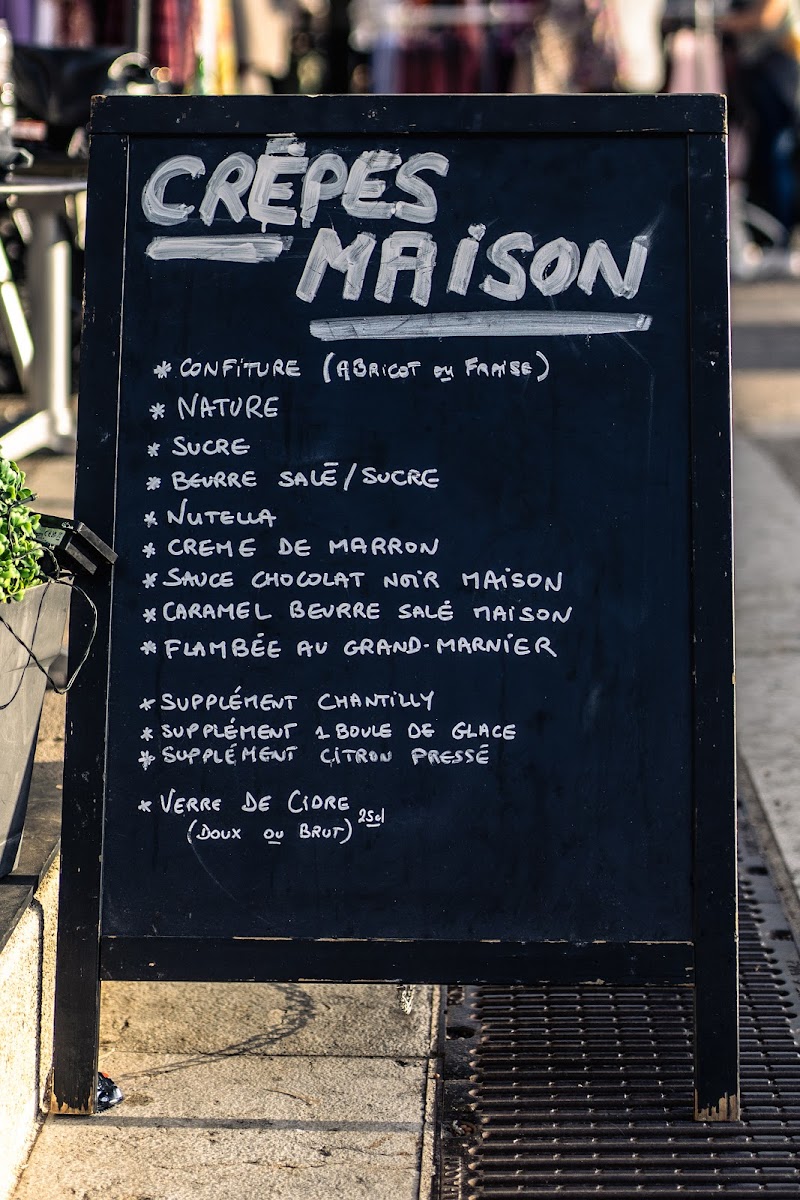 CRÊPES
MAISON
* CONFITURE (ABRICOT ou FRAISE)
* NATURE
* SUCRE
* BEURRE SALÉ/SUCRE
* NUTELLA
* CREME DE MARRON
* SAUCE CHOCOLAT NOIR MAISON
* CARAMEL BEURRE SALÉ MAISON
* FLAMBÉE AU GRAND-MARNIER
* SUPPLÉMENT CHANTILLY
* SUPPLÉMENT 1 BOULE DE GLACE
* SUPPLÉMENT CITRON PRESSÉ
* VERRE DE CIDRE
(DOUX ou BRUT) 25cl